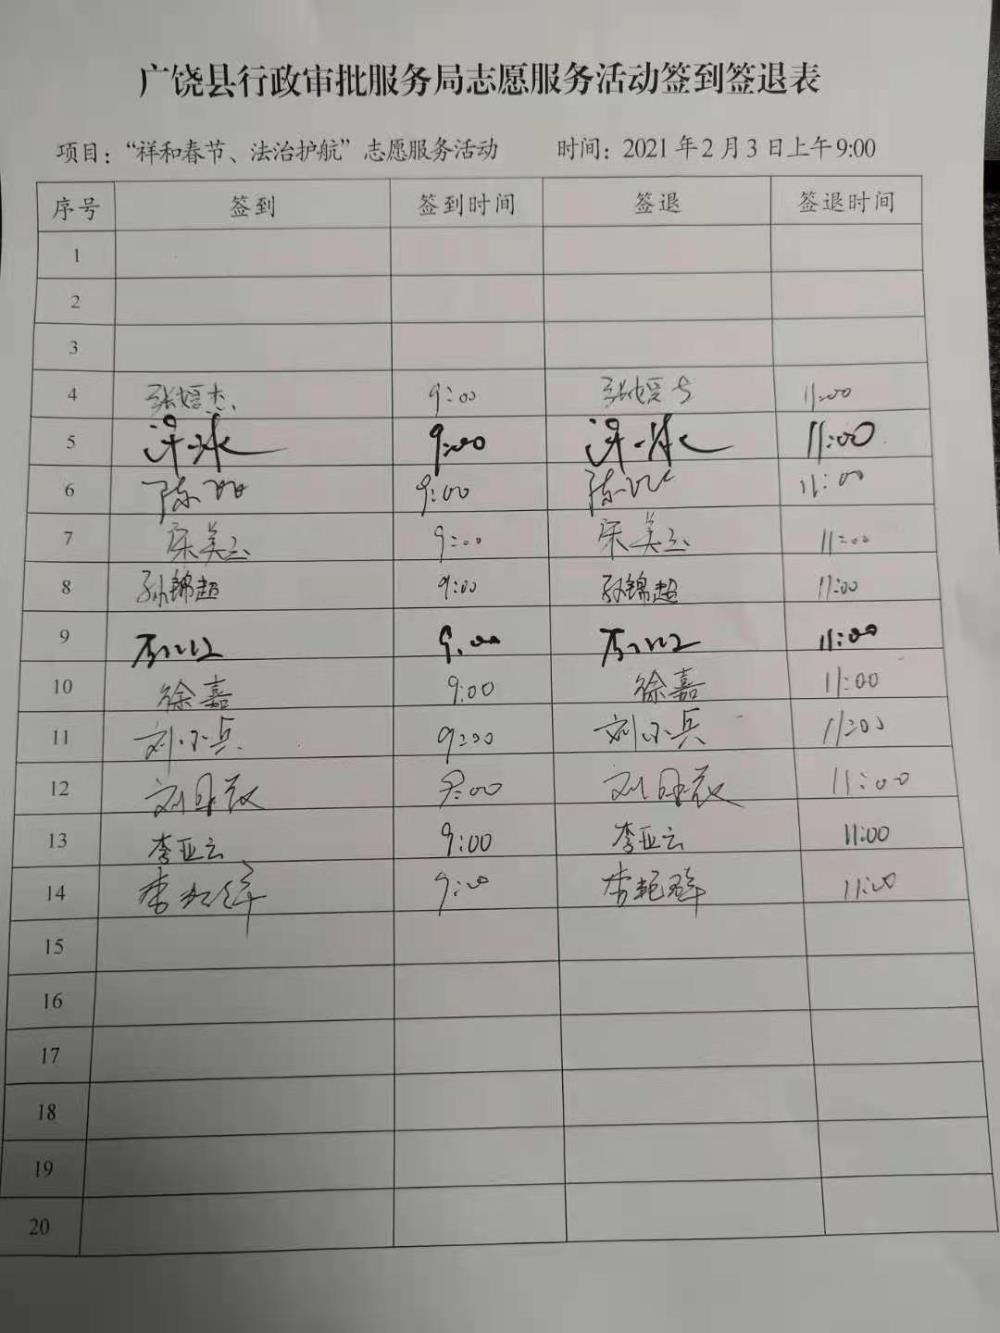 广饶县行政审批服务局志愿服务活动签到签退表
项目：“祥和春节、法治护航”志愿服务活动 时间：2021年2月3日上午9:00
序号 签到 签到时间 签退 签退时间
1
2
3
4 9:00 11:00
5 9:00 11:00
6 陈 9:00 陈 11:00
7 宋美玉 9:00 宋美玉 11:00
8 孙锦超 9:00 孙锦超 11:00
9 9:00 11:00
10 徐嘉 9:00 徐嘉 11:00
11 刘小兵 9:00 刘小兵 11:00
12 刘 9:00 刘 11:00
13 李亚云 9:00 李亚云 11:00
14 李 9:00 李 11:00
15
16
17
18
19
20